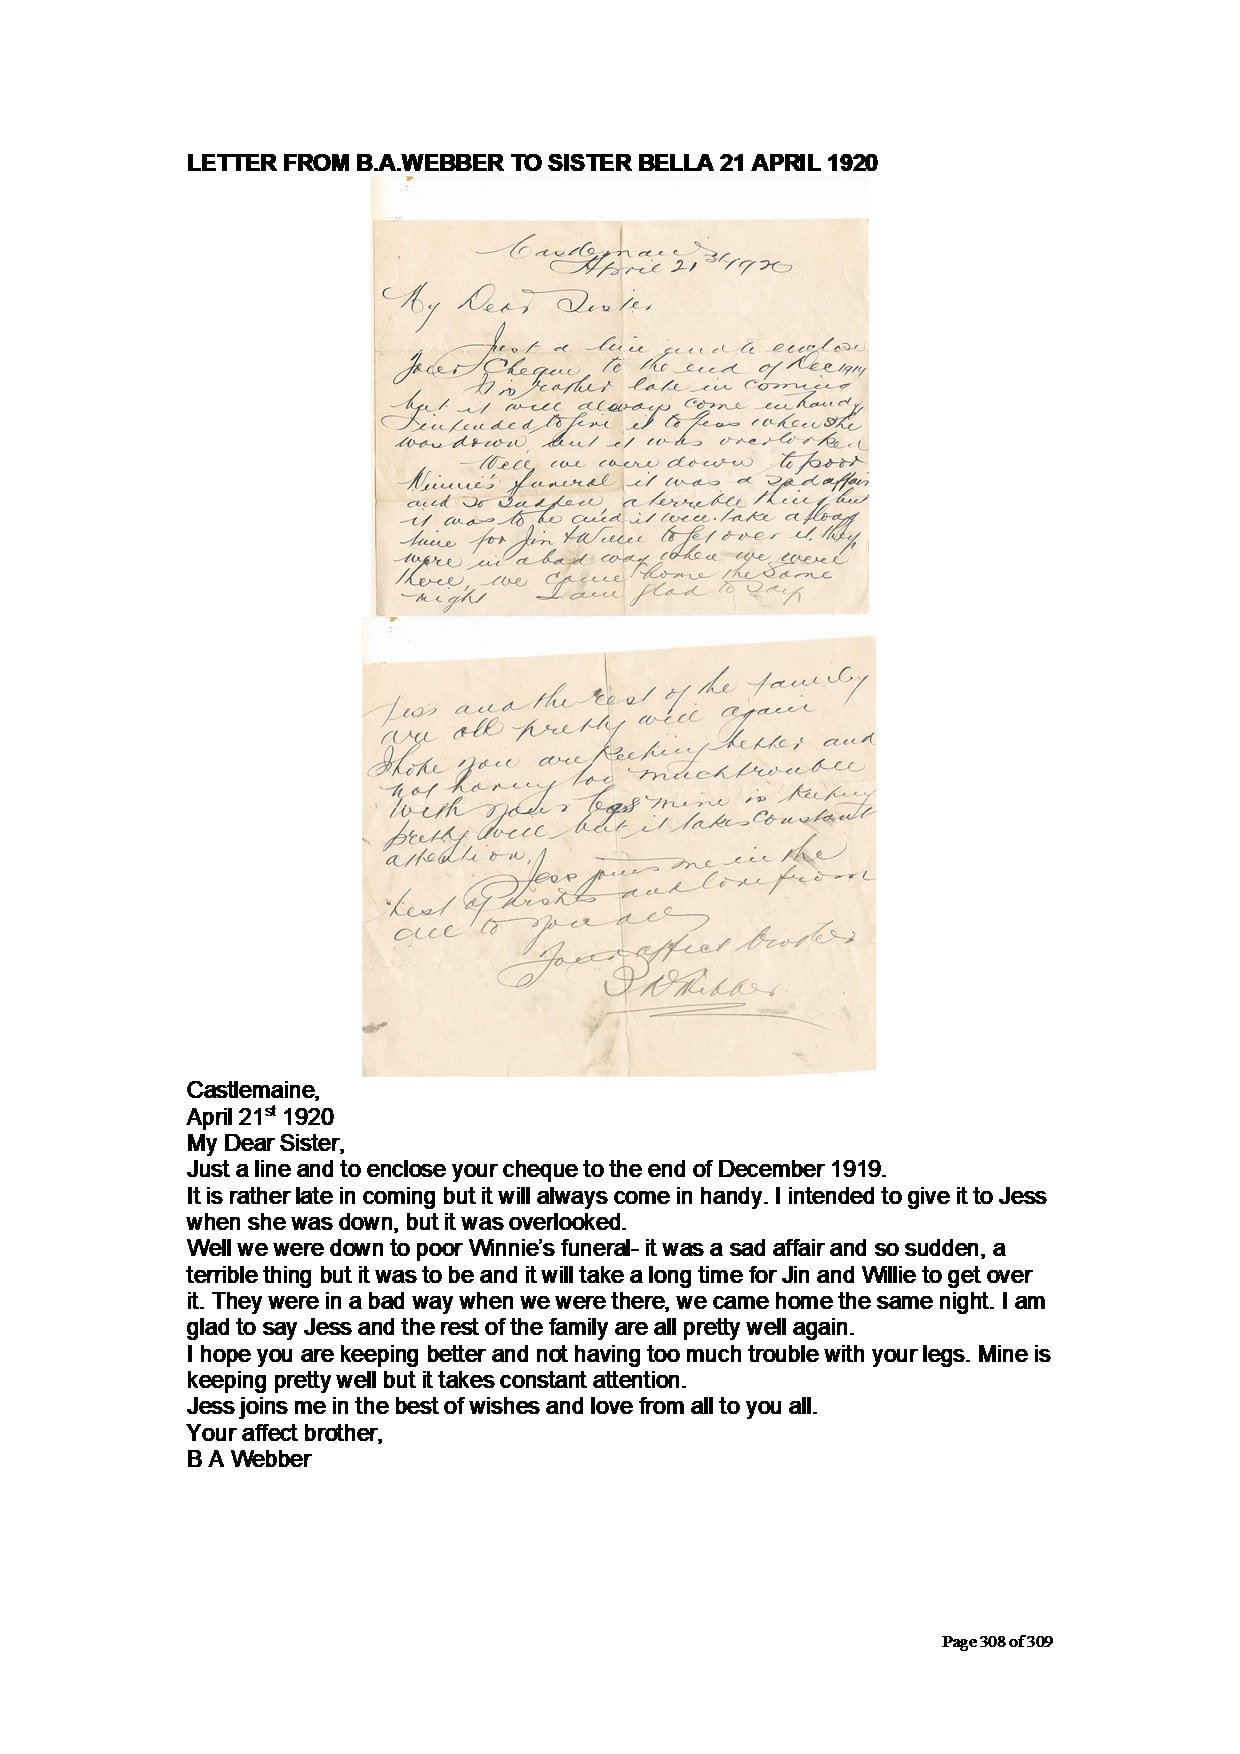 LETTER FROM B.A.WEBBER TO SISTER BELLA 21 APRIL 1920
Castlemaine
April 21st 1920
My Dear Sister
Just a line and to enclose
your Cheque to the end of Dec 1919
It is rather late in coming
but it will always come in handy
I intended to give it to Jess when she
was down, but it was overlooked
Well we were down to poor
Winnie's funeral it was a sad affair
and so sudden, a terrible thing but
it was to be and it will take a long
time for Jin & Willie to get over it they
were in a bad way when we were
there, we came home the same
night I am glad to say
Jess and the rest of the family
are all pretty well again
I hope you are keeping better and
not having too much trouble
with your legs mine is keeping
pretty well but it takes constant
attention.
Jess joins me in the
best of wishes and love from
all to you all
Your affect brother
B A Webber
Castlemaine,
April 21st 1920
My Dear Sister,
Just a line and to enclose your cheque to the end of December 1919.
It is rather late in coming but it will always come in handy. I intended to give it to Jess
when she was down, but it was overlooked.
Well we were down to poor Winnie's funeral- it was a sad affair and so sudden, a
terrible thing but it was to be and it will take a long time for Jin and Willie to get over
it. They were in a bad way when we were there, we came home the same night. I am
glad to say Jess and the rest of the family are all pretty well again.
I hope you are keeping better and not having too much trouble with your legs. Mine is
keeping pretty well but it takes constant attention.
Jess joins me in the best of wishes and love from all to you all.
Your affect brother,
B A Webber
Page 308 of 309